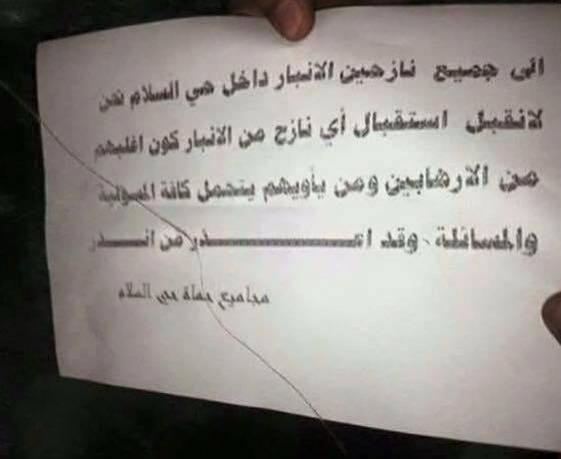 الى جميع نازحين الانبار داخل حي السلام نحن
لانقبل استقبال أي نازح من الانبار كون اغلبهم
من الارهابين ومن يأويهم يتحمل كافة المسؤلية
والمسائلة - وقد اعـــــــــــذر من انـــــذر
مجاميع حماة حي السلام